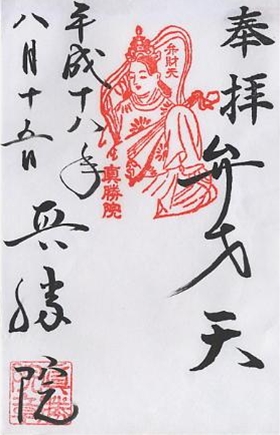 奉拝
弁才天
弁財天
真勝院
平成十八年
八月十五日
真勝院